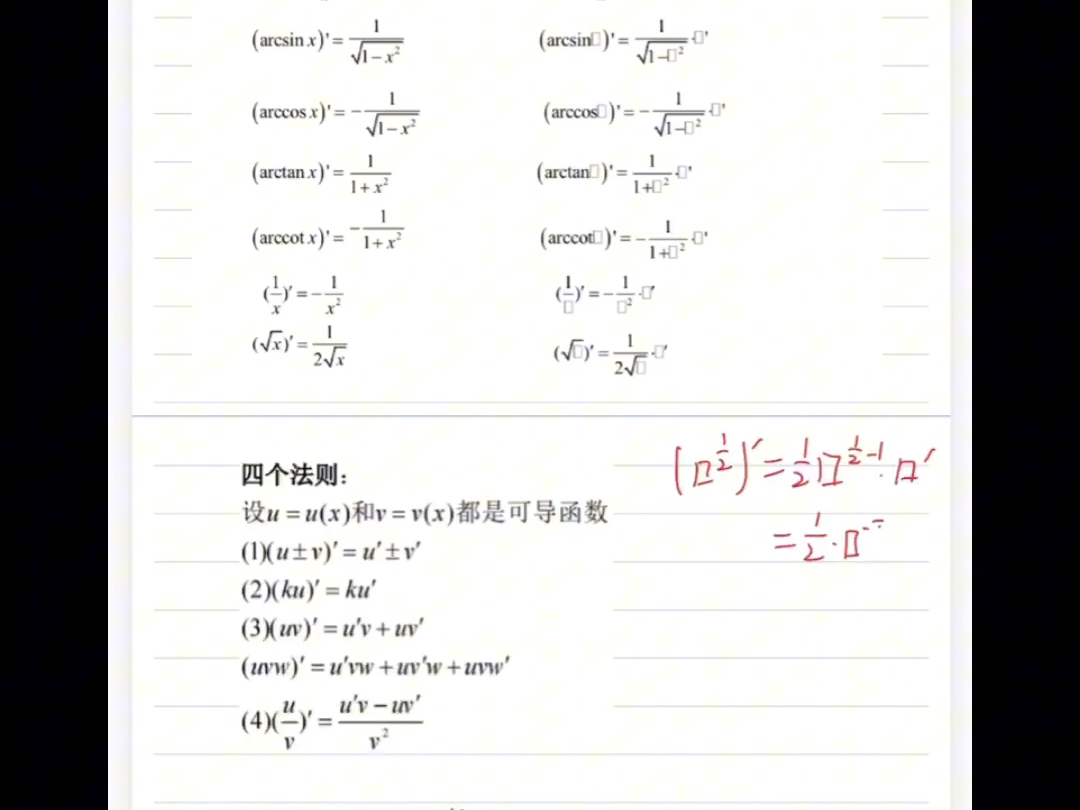 (arcsin x)' = 1/√(1−x²) (arcsin□)' = 1/√(1−□²)·□'
(arccos x)' = −1/√(1−x²) (arccos□)' = −1/√(1−□²)·□'
(arctan x)' = 1/(1+x²) (arctan□)' = 1/(1+□²)·□'
(arccot x)' = −1/(1+x²) (arccot□)' = −1/(1+□²)·□'
(1/x)' = −1/x² (1/□)' = −1/□²·□'
(√x)' = 1/(2√x) (√□)' = 1/(2√□)·□'
(□^(1/2))' = 1/2 □^(1/2−1)·□'
= 1/2·□
四个法则:
设u = u(x)和v = v(x)都是可导函数
(1)(u ± v)' = u' ± v'
(2)(ku)' = ku'
(3)(uv)' = u'v + uv'
(uvw)' = u'vw + uv'w + uvw'
(4)(u/v)' = (u'v − uv')/v²